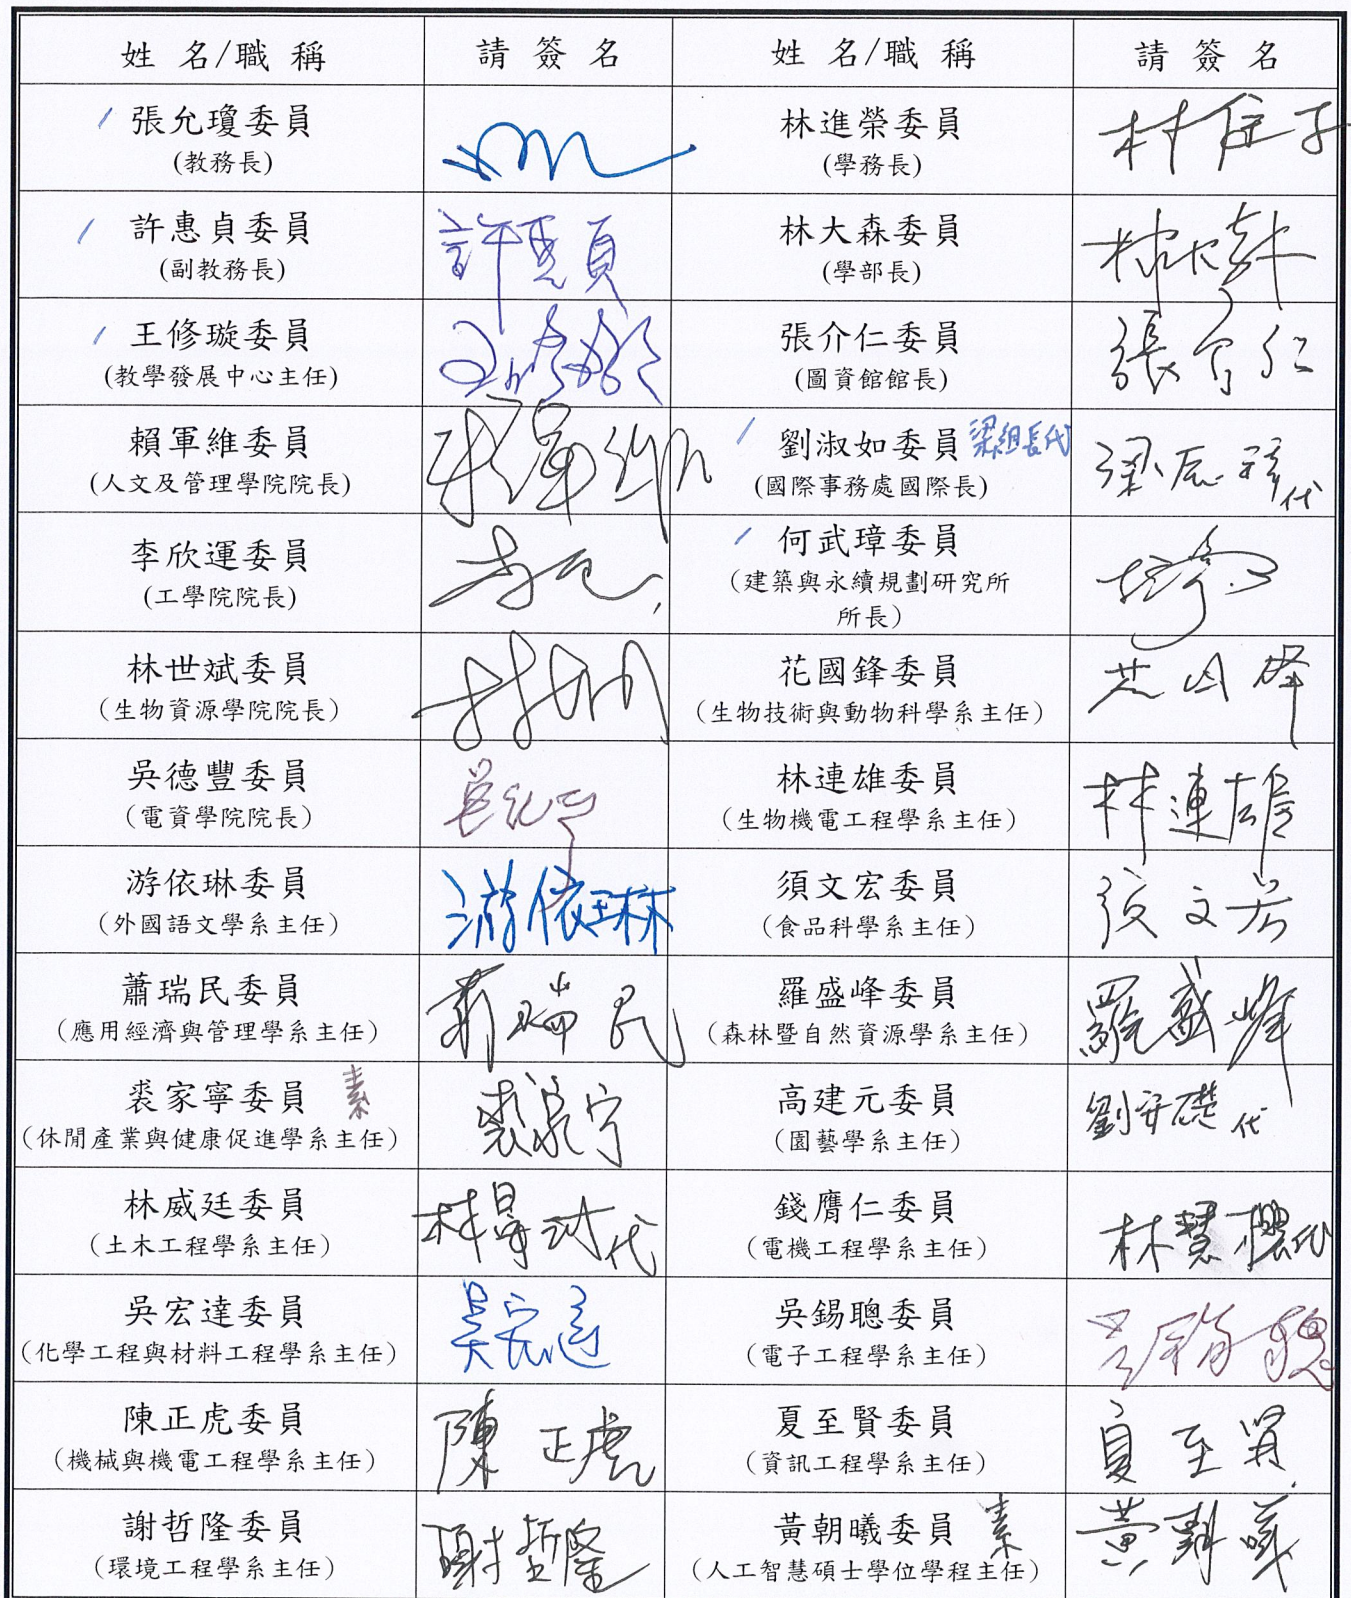 姓 名/職 稱 請 簽 名 姓 名/職 稱 請 簽 名
張允瓊委員
(教務長)
林進榮委員
(學務長)
許惠貞委員
(副教務長)
許惠貞
林大森委員
(學部長)
王修璇委員
(教學發展中心主任)
張介仁委員
(圖資館館長)
張介仁
賴軍維委員
(人文及管理學院院長)
劉淑如委員 梁組長代
(國際事務處國際長)
代
李欣運委員
(工學院院長)
何武璋委員
(建築與永續規劃研究所
所長)
林世斌委員
(生物資源學院院長)
花國鋒委員
(生物技術與動物科學系主任)
吳德豐委員
(電資學院院長)
林連雄委員
(生物機電工程學系主任)
林連雄
游依琳委員
(外國語文學系主任)
游依琳
須文宏委員
(食品科學系主任)
蕭瑞民委員
(應用經濟與管理學系主任)
蕭瑞民
羅盛峰委員
(森林暨自然資源學系主任)
羅盛峰
裘家寧委員 素
(休閒產業與健康促進學系主任)
裘家宁
高建元委員
(園藝學系主任)
劉安礎代
林威廷委員
(土木工程學系主任)
代
錢膺仁委員
(電機工程學系主任)
林慧櫻代
吳宏達委員
(化學工程與材料工程學系主任)
吳宏達
吳錫聰委員
(電子工程學系主任)
陳正虎委員
(機械與機電工程學系主任)
陳正虎
夏至賢委員
(資訊工程學系主任)
夏至賢
謝哲隆委員
(環境工程學系主任)
謝哲隆
黃朝曦委員 素
(人工智慧碩士學位學程主任)
黃朝曦